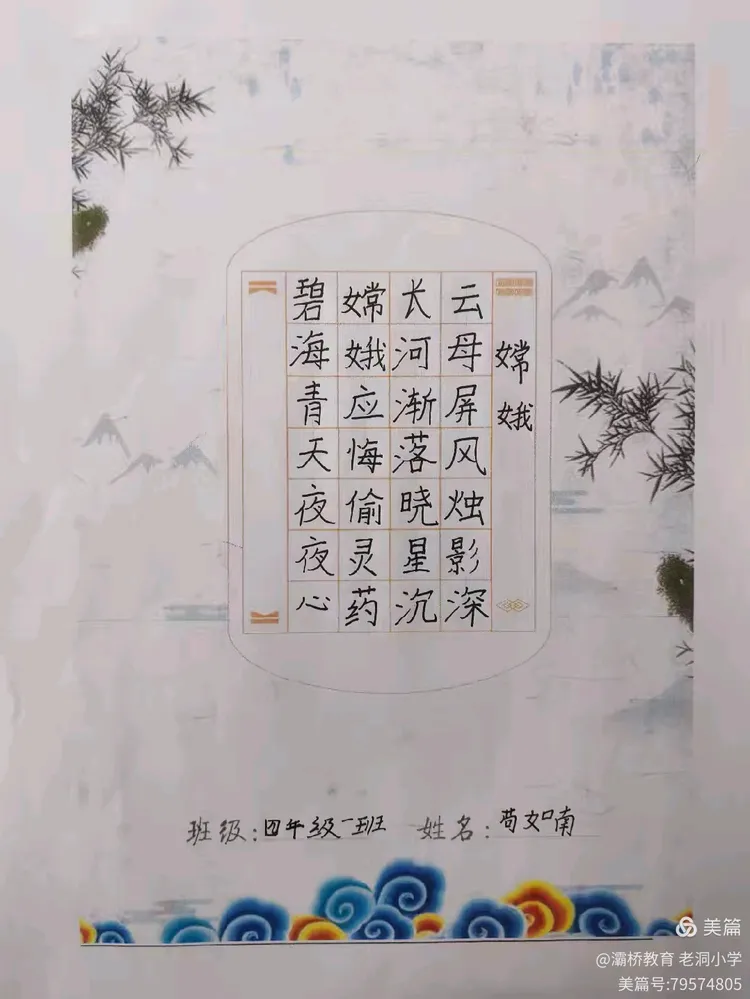 嫦娥
云母屏风烛影深
长河渐落晓星沉
嫦娥应悔偷灵药
碧海青天夜夜心
班级:四年级一班 姓名:苟如喃
美篇
@灞桥教育 老洞小学
美篇号:79574805